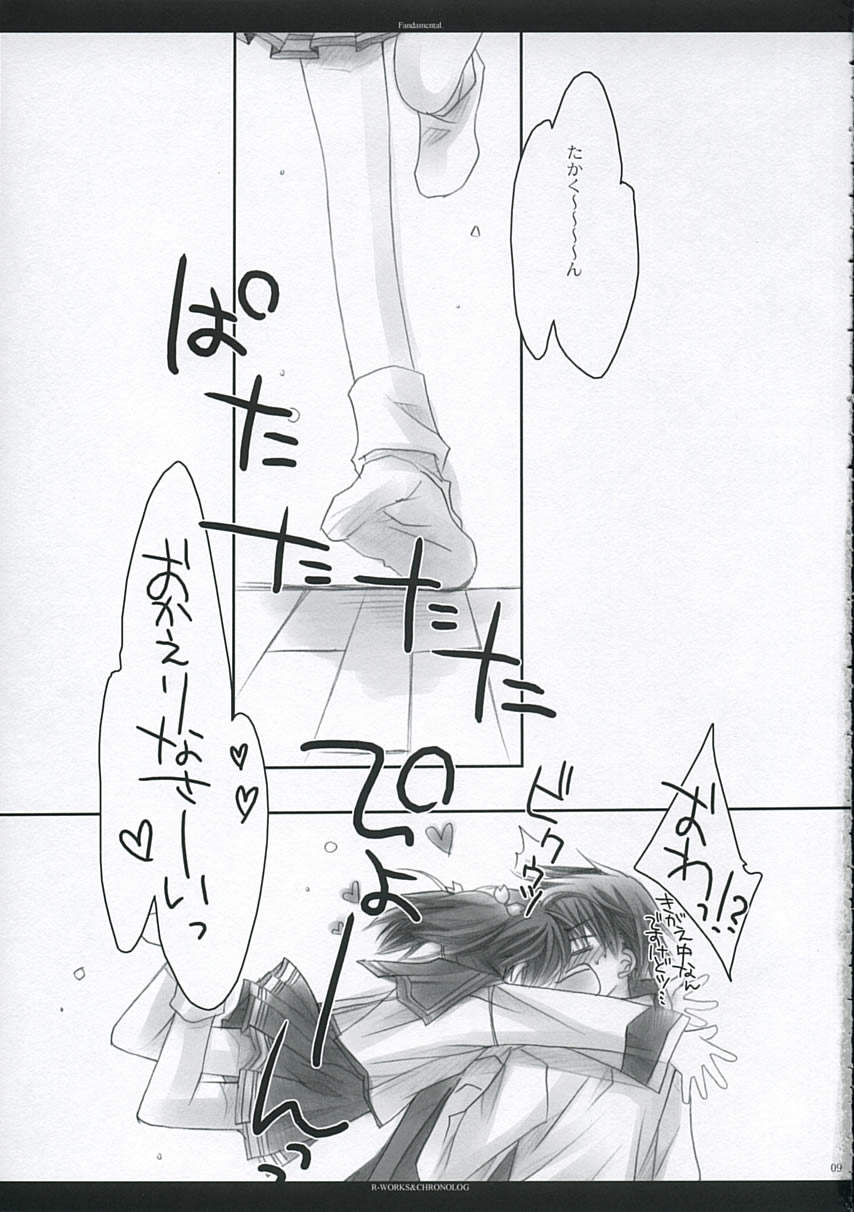 Fandamental
たかく～～～～ん
ぱたたたた
おかえりなさーいっ♡♡♡
ぴょーんっ
おわっ!?
ビクゥッ
きがえ中なん
ですけどッ…
09
R-WORKS&CHRONOLOG